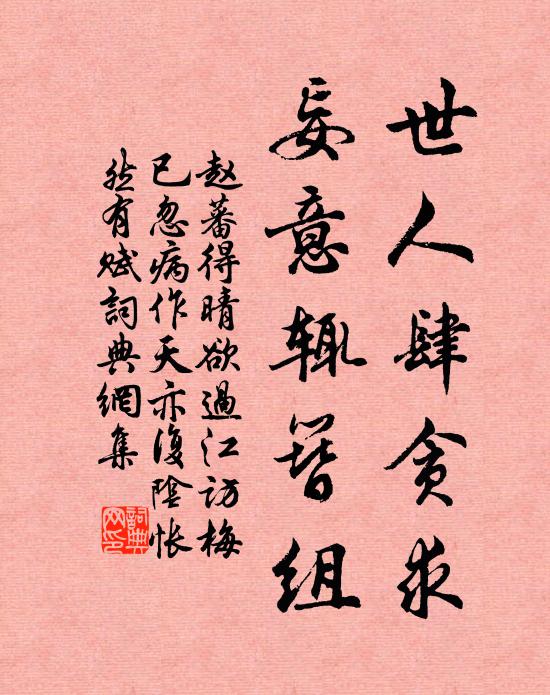 世人肆贪求
妄意辄簪组
赵蕃得晴欲過江访梅
已忽病作天亦復陰怅
然有赋詞典網集
詞典网印